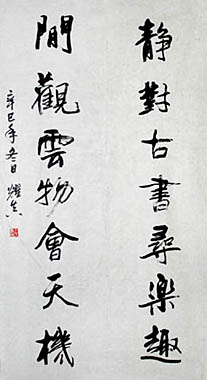 静對古書尋樂趣
閒觀雲物會天機
辛巳年冬日 耀